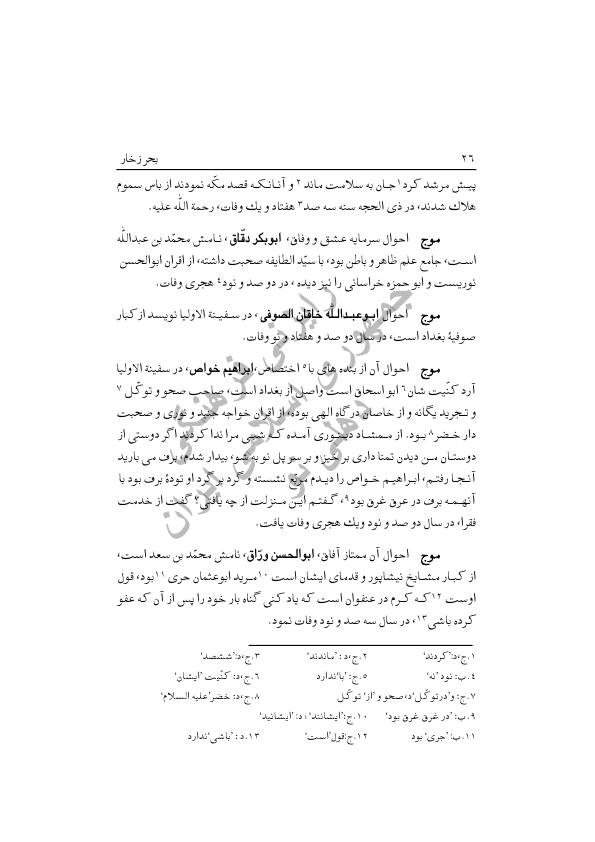 ۲۶ بحر زخار
پیش مرشد کرد۱جان به سلامت ماند ۲ و آنانکه قصد مکّه نمودند از باس سموم
هلاك شدند، در ذی الحجه سنه سه صد۳ هفتاد و یك وفات، رحمة الله علیه.
موج احوال سرمایه عشق و وفاق، ابوبکر دقّاق، نامش محمّد بن عبدالله
است، جامع علم ظاهر و باطن بود، با سیّد الطایفه صحبت داشته، از اقران ابوالحسن
نوریست و ابو حمزه خراسانی را نیز دیده ، در دو صد و نود۴ هجری وفات.
موج احوال ابوعبدالله خاقان الصوفی ، در سفینة الاولیا نویسد از کبار
صوفیۀ بغداد است، در سال دو صد و هفتاد و نو وفات.
موج احوال آن از بنده های با۵ اختصاص،ابراهیم خواص، در سفینة الاولیا
آرد کنّیت شان۶ ابو اسحاق است واصل از بغداد است، صاحب صحو و توکّل ۷
و تجرید یگانه و از خاصان درگاه الهی بوده، از اقران خواجه جنید و نوری و صحبت
دار خضر۸ بود. از ممشاد دینوری آمده که شبی مرا ندا کردند اگر دوستی از
دوستان من دیدن تمنا داری بر خیز و بر سر پل نو به شو، بیدار شدم، برف می بارید
آنجا رفتم، ابراهیم خواص را دیدم مربّع نشسته و گرد بر گرد او تودۀ برف بود با
آنهمه برف در عرق غرق بود۹، گفتم این منزلت از چه یافتی؟ گفت از خدمت
فقرا، در سال دو صد و نود ویك هجری وفات یافت.
موج احوال آن ممتاز آفاق، ابوالحسن ورّاق، نامش محمّد بن سعد است،
از کبار مشایخ نیشاپور و قدمای ایشان است ۱۰مرید ابوعثمان حری ۱۱بود، قول
اوست ۱۲که کرم در عنفوان است که یاد کنی گناه بار خود را پس از آن که عفو
کرده باشی۱۳، در سال سه صد و نود وفات نمود.
۱.ج،د:'کردند' ۲.ج،د : 'ماندند' ۳.ج،د:'ششصد'
۴.ب: نود 'نه' ۵.ج: 'با'ندارد ۶.ج،د: کنّیت 'ایشان'
۷.ج: و'درتوکّل'د،صحو و 'از' توکّل ۸.ج،د: خضر'علیه السلام'
۹.ب: 'در غرق غرق بود' ۱۰.ج:'ایشانند' ؛ د: 'ایشانید'
۱۱.ب: 'جری' بود ۱۲.ج:قول'است' ۱۳.د : 'باشی'ندارد